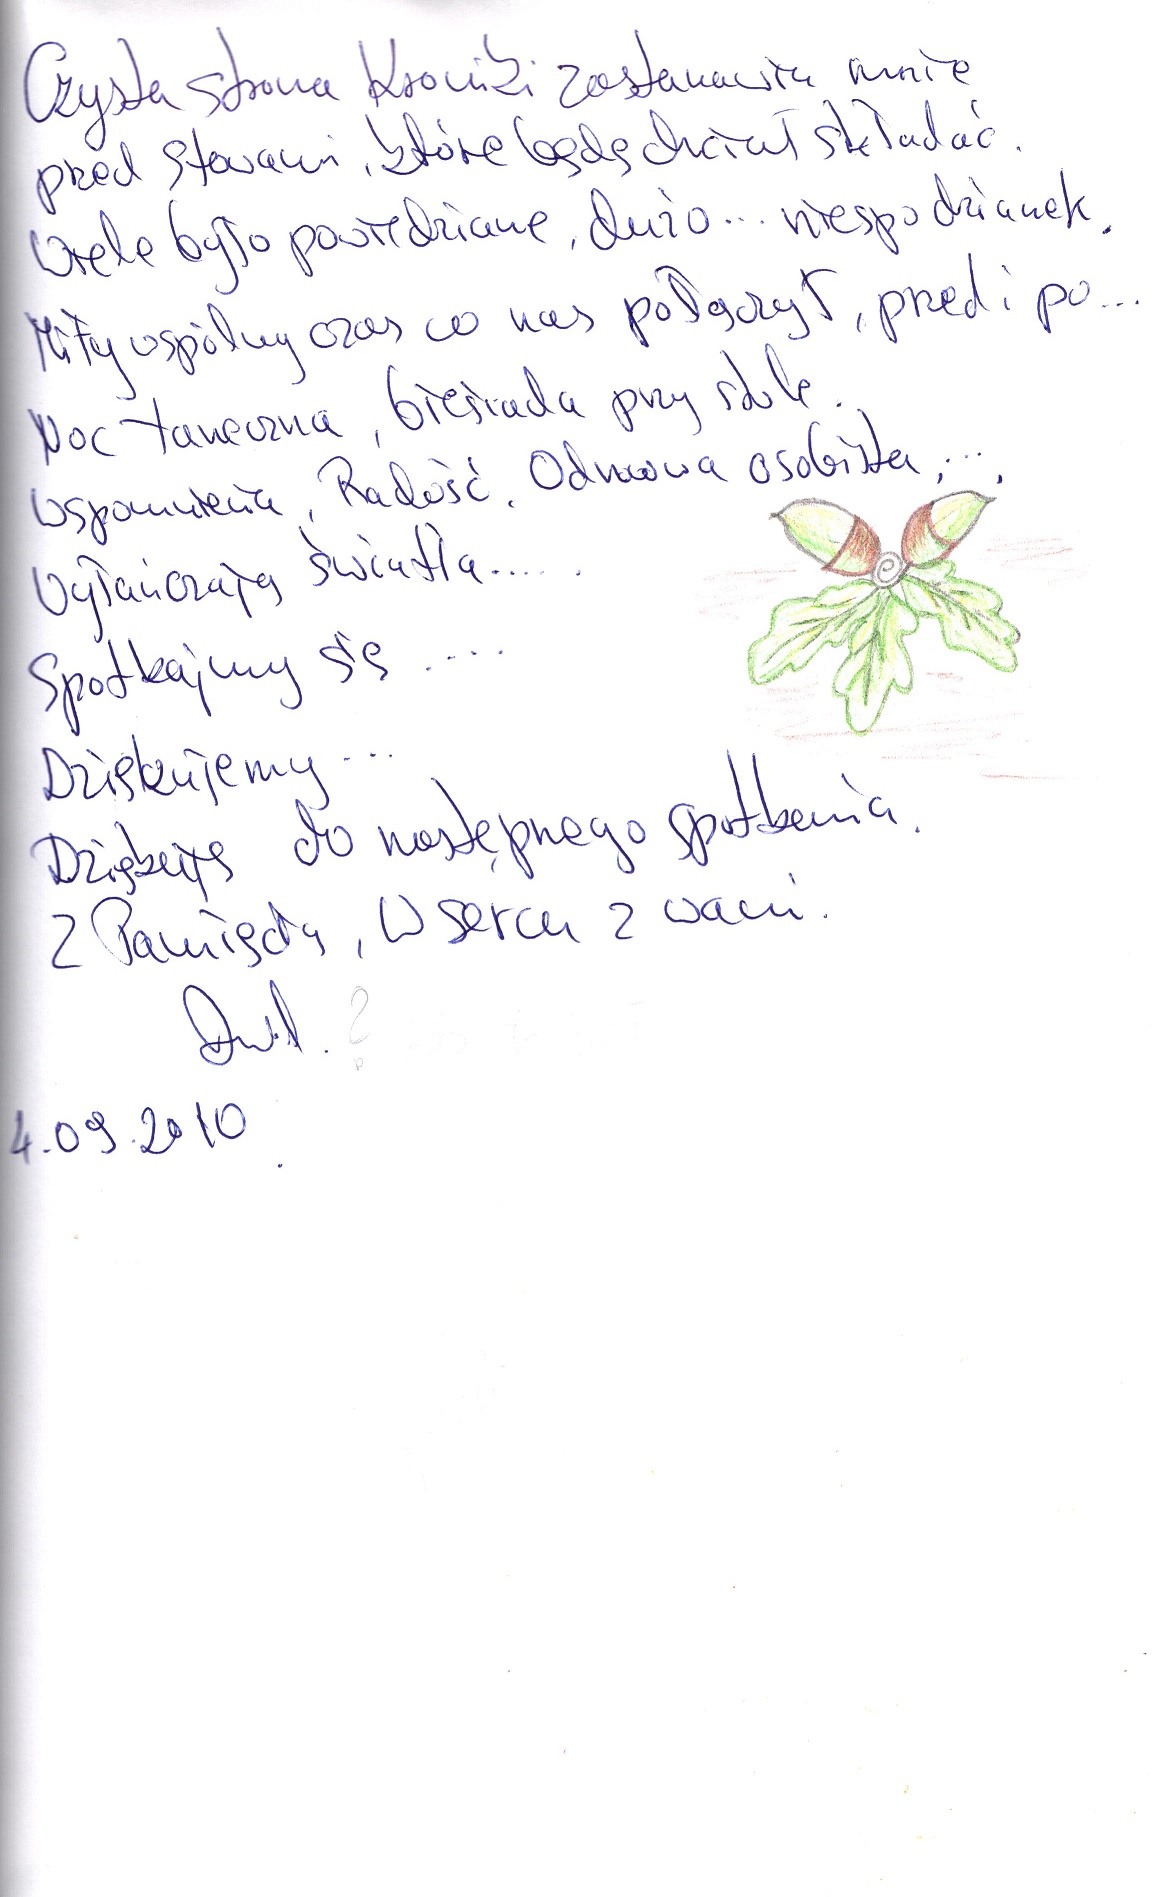 Czysta strona Kroniki zastanawia mnie
przed słowami, które będę chciał składać.
Wiele było powiedziane, dużo... niespodzianek.
Miły wspólny czas co nas połączył, przed i po...
Noc taneczna, biesiada przy stole.
Wspomnienia, Radość. Odnowa osobista, ...,
Wyłańczają światła.....
Spotkajmy się ....
Dziękujemy...
Dziękuję do następnego spotkania.
Z Pamięcią, W sercu z wami.
?
4.09.2010